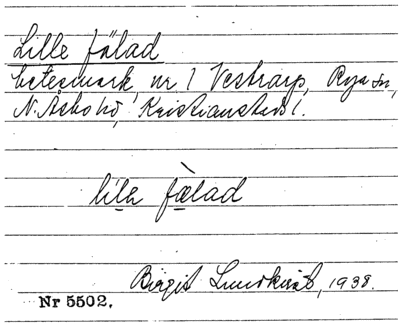 Lille fälad
betesmark nr 1 Vestrarp, Rya sn,
N. Åsbo hd, Kristianstads l.
lilə fælad
Birgit Lundkvist, 1938.
Nr 5502.